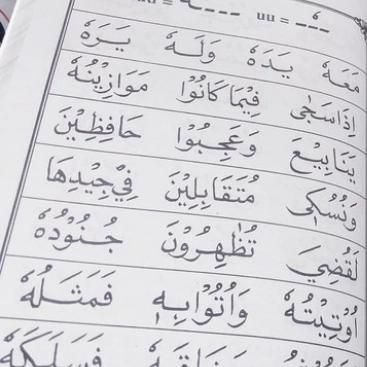 uu =
مَعَهٗ يَدَهٗ وَلَهٗ يَرَهٗ
اِذَاسَجٰى فِيْمَا كَانُوْا مَوَازِيْنُهٗ
يَنَابِيْعَ وَعَجِبُوْا حَافِظِيْنَ
وَنُسُكِى مُتَقَابِلِيْنَ فِيْ جِيْدِهَا
لَقُضِيَ تُظْهِرُوْنَ جُنُوْدُهٗ
اُوْتِيْتُهٗ وَاُتُوْابِهٖ فَمَثَلُهٗ
فَسَلَكَهٗ